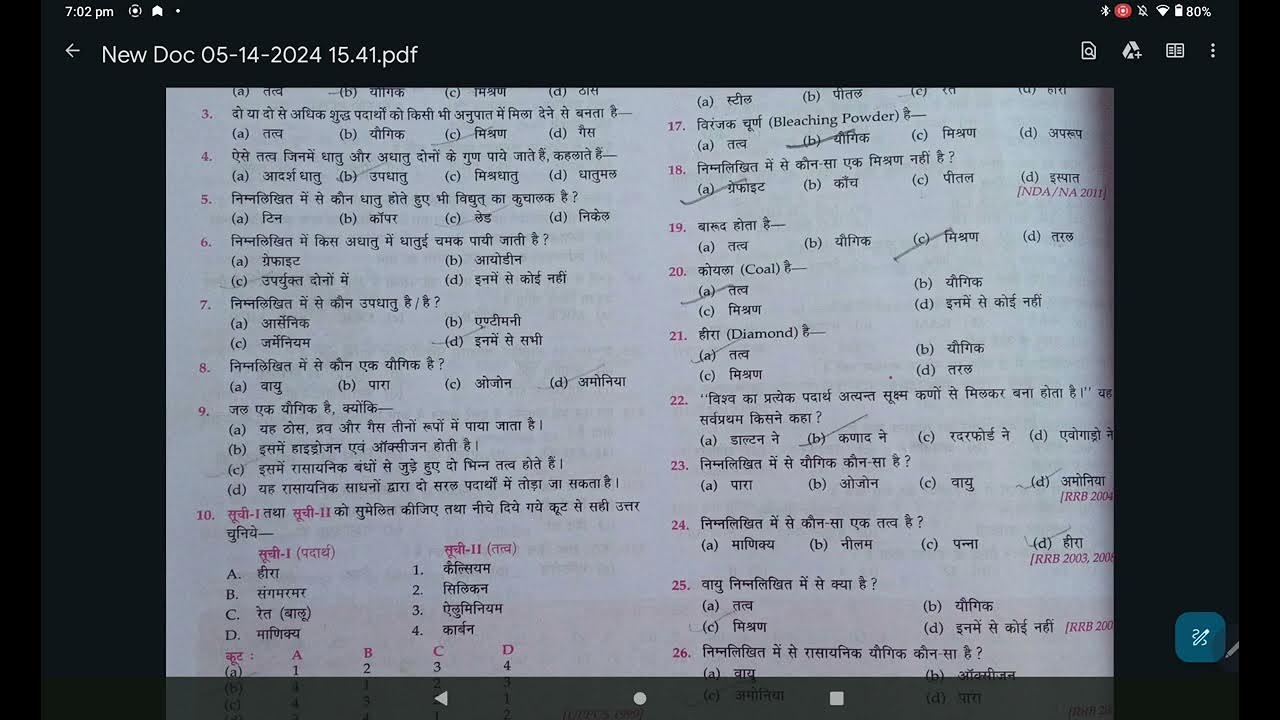 7:02 pm
80%
New Doc 05-14-2024 15.41.pdf
(a) तत्व (b) यौगिक (c) मिश्रण (d) ठोस
3. दो या दो से अधिक शुद्ध पदार्थों को किसी भी अनुपात में मिला देने से बनता है—
(a) तत्व (b) यौगिक (c) मिश्रण (d) गैस
4. ऐसे तत्व जिनमें धातु और अधातु दोनों के गुण पाये जाते हैं, कहलाते हैं—
(a) आदर्श धातु (b) उपधातु (c) मिश्रधातु (d) धातुमल
5. निम्नलिखित में से कौन धातु होते हुए भी विद्युत् का कुचालक है ?
(a) टिन (b) कॉपर (c) लेड (d) निकेल
6. निम्नलिखित में किस अधातु में धातुई चमक पायी जाती है ?
(a) ग्रेफाइट (b) आयोडीन
(c) उपर्युक्त दोनों में (d) इनमें से कोई नहीं
7. निम्नलिखित में से कौन उपधातु है/है ?
(a) आर्सेनिक (b) एण्टीमनी
(c) जर्मेनियम (d) इनमें से सभी
8. निम्नलिखित में से कौन एक यौगिक है ?
(a) वायु (b) पारा (c) ओजोन (d) अमोनिया
9. जल एक यौगिक है, क्योंकि—
(a) यह ठोस, द्रव और गैस तीनों रूपों में पाया जाता है।
(b) इसमें हाइड्रोजन एवं ऑक्सीजन होती है।
(c) इसमें रासायनिक बंधों से जुड़े हुए दो भिन्न तत्व होते हैं।
(d) यह रासायनिक साधनों द्वारा दो सरल पदार्थों में तोड़ा जा सकता है।
10. सूची-I तथा सूची-II को सुमेलित कीजिए तथा नीचे दिये गये कूट से सही उत्तर
चुनिये—
सूची-I (पदार्थ) सूची-II (तत्व)
A. हीरा 1. कैल्सियम
B. संगमरमर 2. सिलिकन
C. रेत (बालू) 3. ऐलुमिनियम
D. माणिक्य 4. कार्बन
कूट : A B C D
(a) 1 2 3 4
(b) 4 1 2 3
(c) 4 3 2 1
4 1 2
(a) स्टील (b) पीतल (c) रेत (d) हीरा
17. विरंजक चूर्ण (Bleaching Powder) है—
(a) तत्व (b) यौगिक (c) मिश्रण (d) अपरूप
18. निम्नलिखित में से कौन-सा एक मिश्रण नहीं है ?
(a) ग्रेफाइट (b) काँच (c) पीतल (d) इस्पात
[NDA/NA 2011]
19. बारूद होता है—
(a) तत्व (b) यौगिक (c) मिश्रण (d) तरल
20. कोयला (Coal) है—
(a) तत्व (b) यौगिक
(c) मिश्रण (d) इनमें से कोई नहीं
21. हीरा (Diamond) है—
(a) तत्व (b) यौगिक
(c) मिश्रण (d) तरल
22. ‘‘विश्व का प्रत्येक पदार्थ अत्यन्त सूक्ष्म कणों से मिलकर बना होता है।’’ यह
सर्वप्रथम किसने कहा ?
(a) डाल्टन ने (b) कणाद ने (c) रदरफोर्ड ने (d) एवोगाड्रो ने
23. निम्नलिखित में से यौगिक कौन-सा है ?
(a) पारा (b) ओजोन (c) वायु (d) अमोनिया
[RRB 2004
24. निम्नलिखित में से कौन-सा एक तत्व है ?
(a) माणिक्य (b) नीलम (c) पन्ना (d) हीरा
[RRB 2003, 200
25. वायु निम्नलिखित में से क्या है ?
(a) तत्व (b) यौगिक
(c) मिश्रण (d) इनमें से कोई नहीं [RRB 200
26. निम्नलिखित में से रासायनिक यौगिक कौन-सा है ?
(a) वायु (b) ऑक्सीजन
(c) अमोनिया (d) पारा